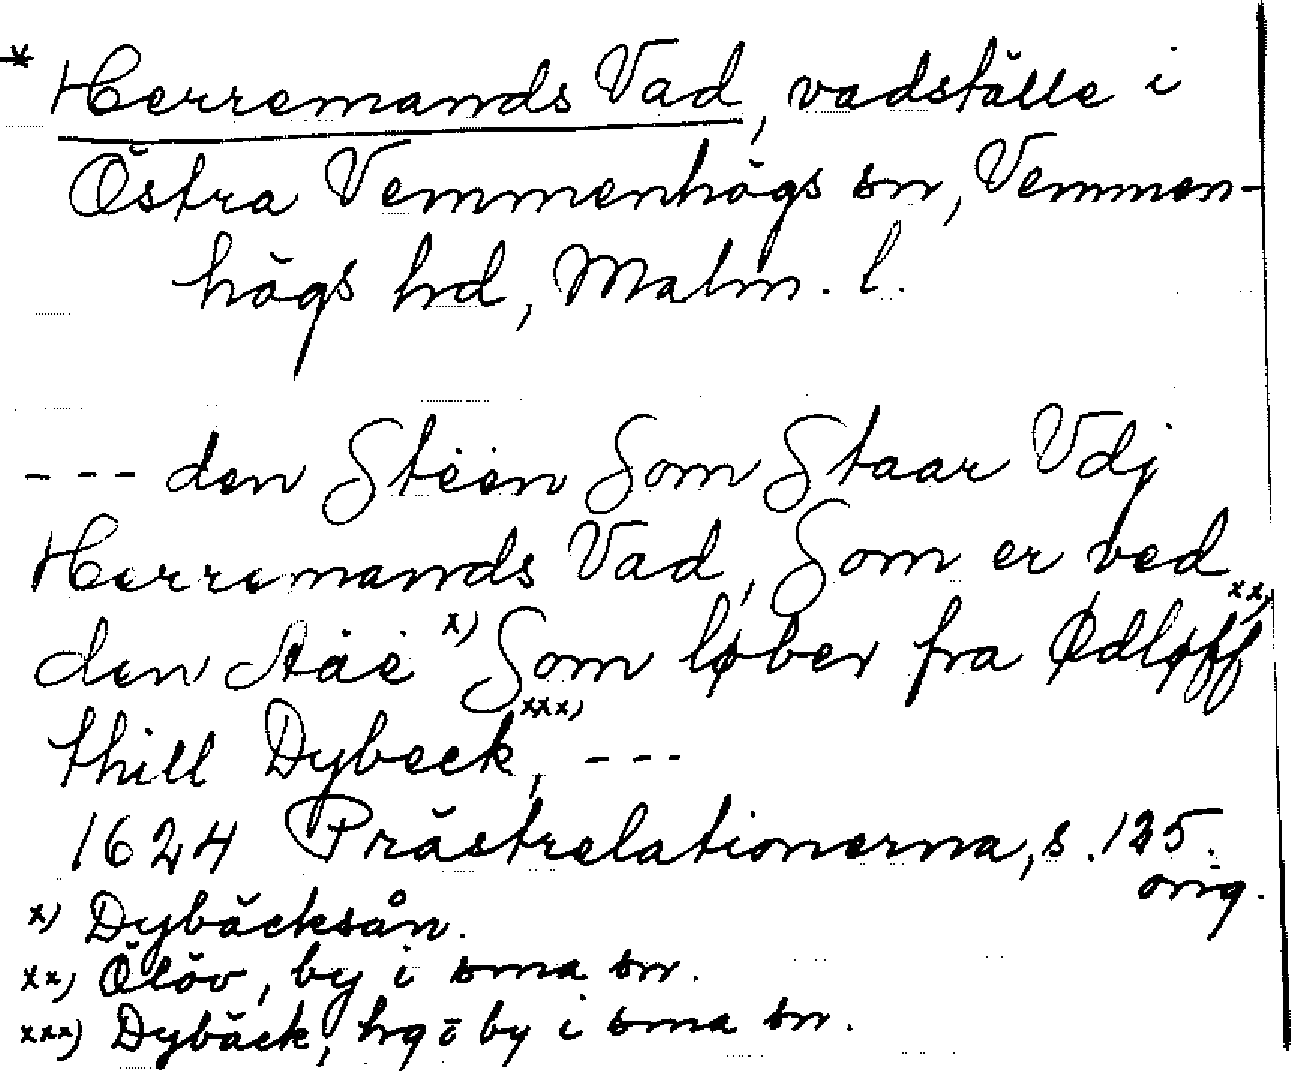 * Herremands Vad, vadställe i
Östra Vemmenhögs sn, Vemmen-
högs hd, Malm. l.
- - - den Stéen Som Staar Vdj
Herremands Vad, Som er ved
den Aäe x) Som løber fra Ødløff xx)
thill Dybeck xxx), - - -
1624 Prästrelationerna, s. 125.
orig.
x) Dybäcksån.
xx) Ölöv, by i sma sn.
xxx) Dybäck, hg o by i sma sn.